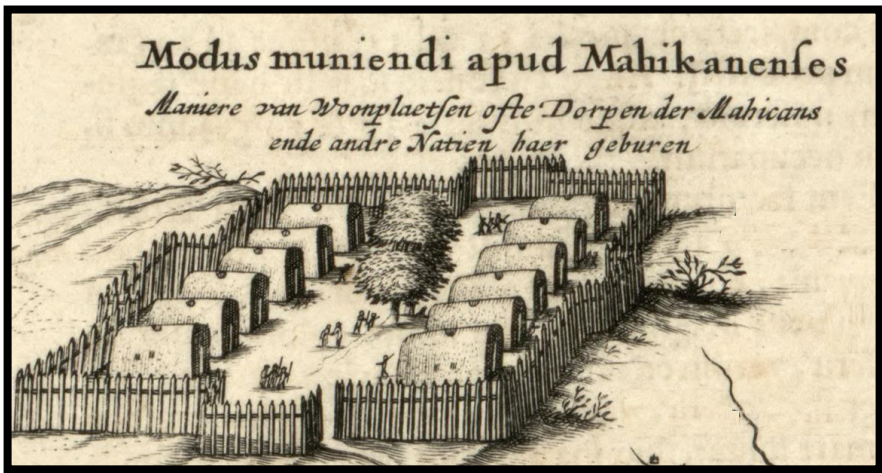 Modus muniendi apud Mahikanenſes
Maniere van Woonplaetſen ofte Dorpen der Mahicans
ende andre Natien haer geburen